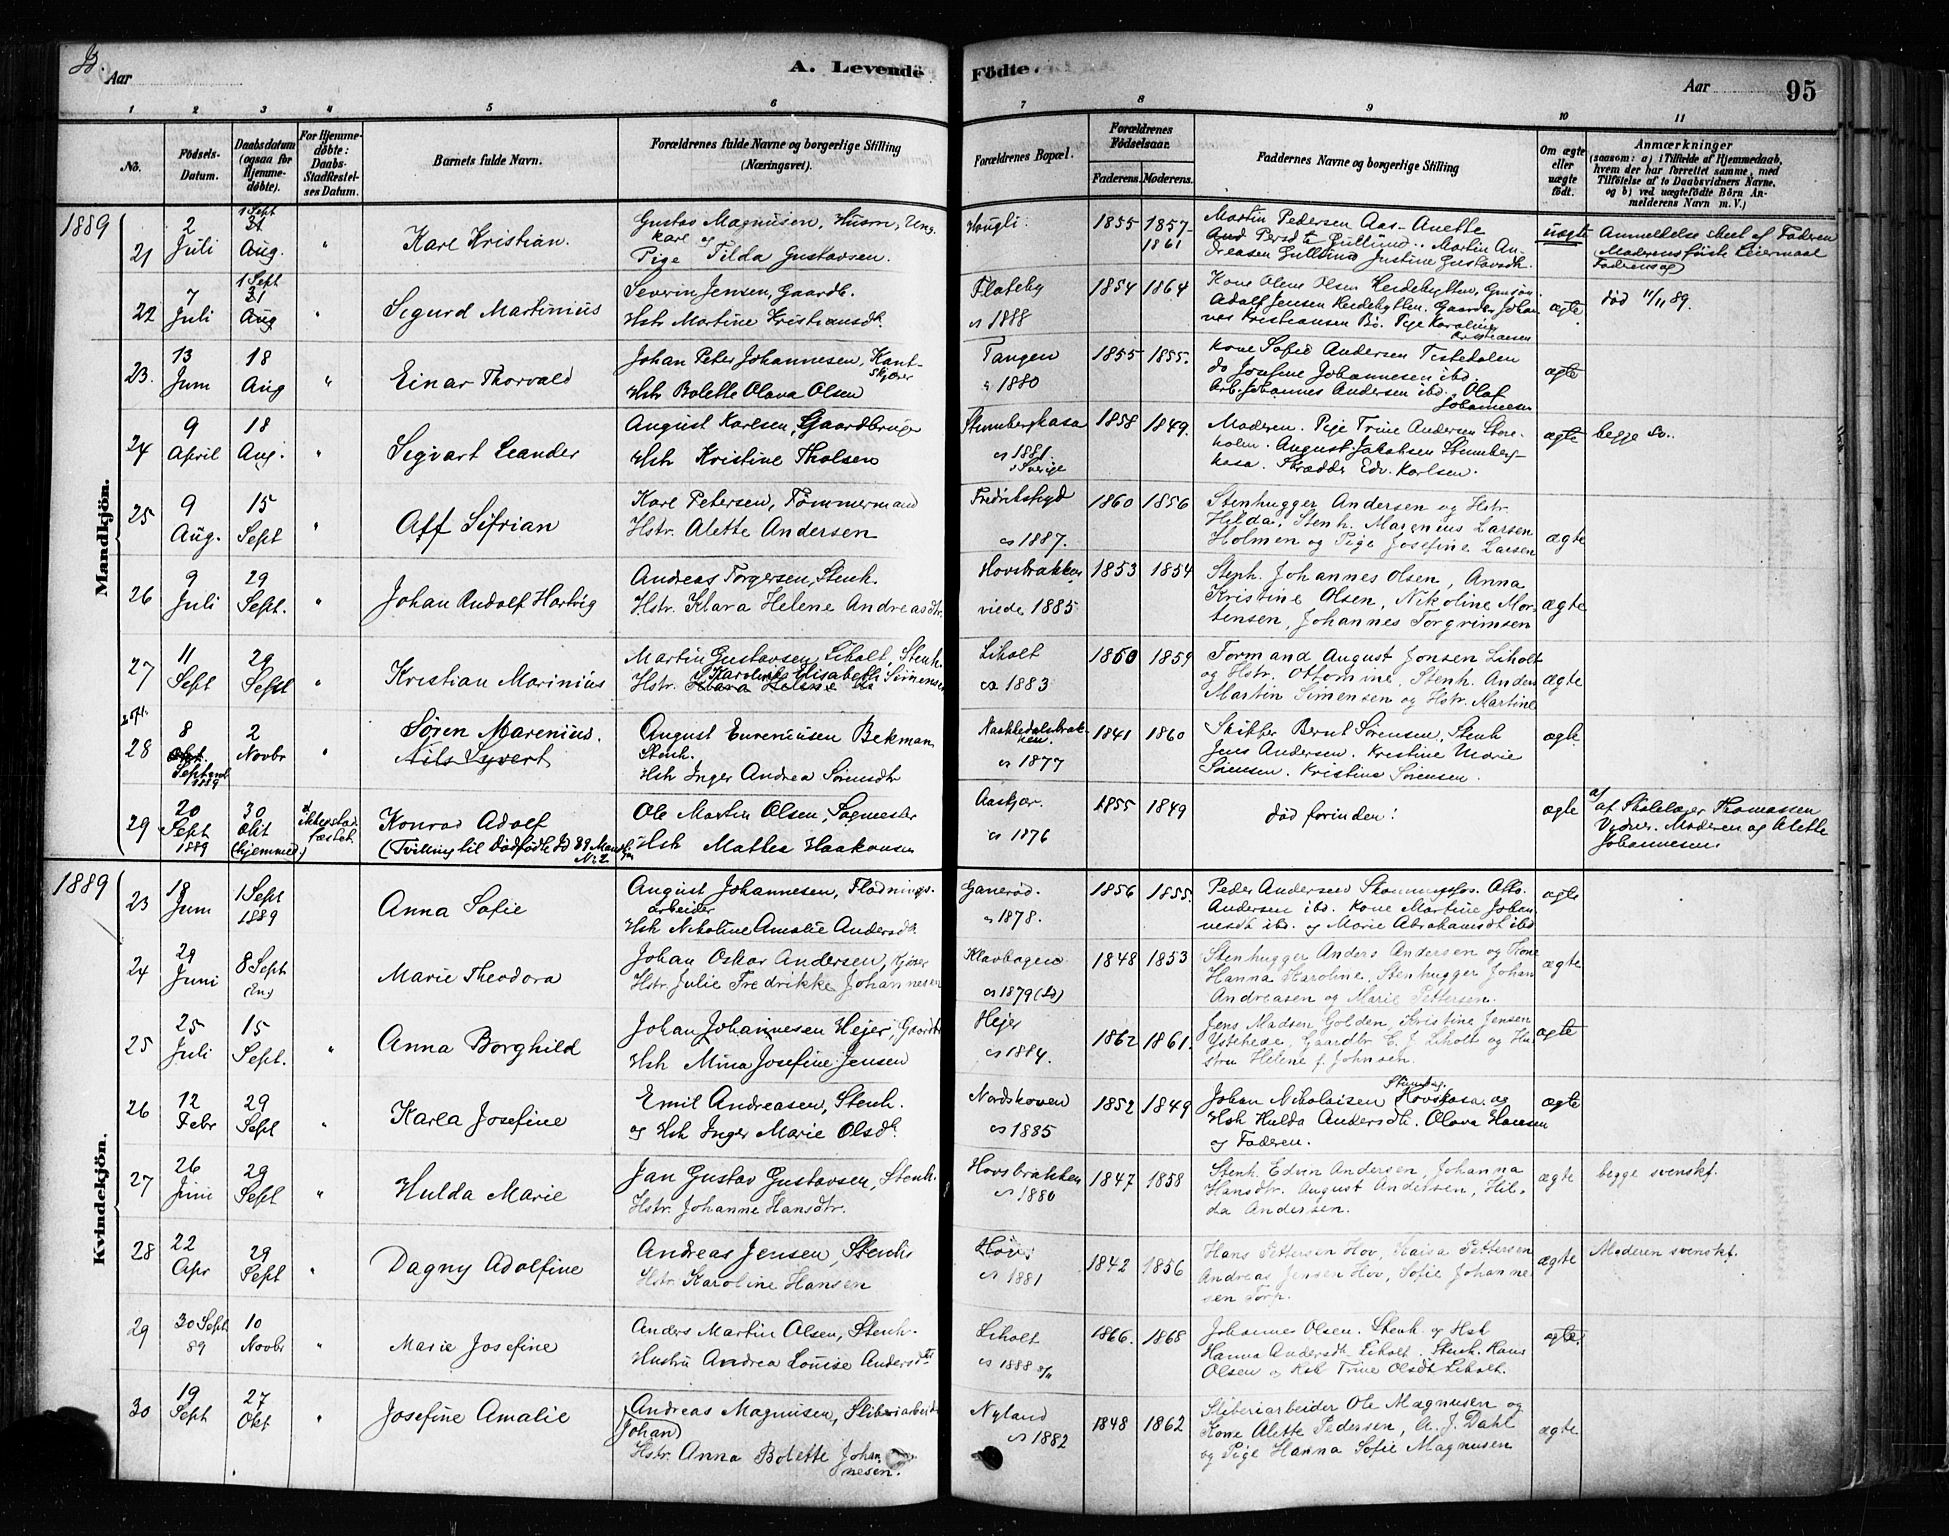 Aar
A. Levende Födte.
Aar
95
1 2 3 4 5 6 7 8 9 10 11
No.
Födsels-Datum.
Daabsdatum (ogsaa for Hjemme-döbte).
For Hjemme-döbte: Daabs-Stadfæstel-ses Datum.
Barnets fulde Navn.
Forældrenes fulde Navne og borgerlige Stilling (Næringsvei).
Forældrenes Bopæl.
Forældrenes Födselsaar.
Faderens. Moderens.
Faddernes Navne og borgerlige Stilling
Om ægte eller uægte födt.
Anmærkninger
(saasom: a) i Tilfælde af Hjemmedaab,
hvem der har forrettet samme, med
Tilföielse af to Daabsvidners Navne,
og b) ved uægtefödte Börn An-
melderens Navn m. V.)
Mandkjön.
1889
21
2 Juli
1 Sept 21 Aug.
"
Karl Kristian.
Gustav Magnusen, Husm, Ung
karl og
Pige Tilda Gustavsen.
Hougli
1855 1857-
1861
Martin Pedersen Aas - Anette
And Persdtr Gullund. Martin An-
dreasen Gullund Justine Gustavsdtr
uægte
Anmeldelse skeet af Faderen
Moderens første Leiermaal
Faderens og
22
7 Juli
1 Sept 21 Aug
Sigurd Martinius
Severin Jensen, Gaardb.
Hstr Martine Kristiansdtr
Flateby
1888
1854 1864
Kone Olene Olsen Heidehytten,
Adolf Jensen Heidehytten. Gaardbr Johan-
nes Kristiansen Bø. Pige Karoline
Kristiansen
ægte
død 11/11 89.
23.
13 Juni
18 Aug
"
Einar Thorvald
Johan Peter Johannesen, Kant-
skjærer
Hstr Bolette Olava Olsen
Tangen
1880
1855 1855.
Kone Sofie Andersen Tistedalen
do Josefine Johannesen ibd.
Arb. Johannes Andersen ibd. Olaf
Johannesen
ægte
24
9 April
18 Aug.
"
Sigvart Leander
August Karlsen, Gaardbruger
Hstr Kristine Tholsen
Stumberkasa
1881.
i Sverige
1858 1849.
Moderen. Pige Trine Andersen Store-
holm. August Jakobsen Stumber-
kasa. Skrædder Edv. Karlsen.
ægte
begge Sv.
25
9 Aug.
15 Sept
"
Alf Sifrian
Karl Petersen, Tømmermand
Hstr. Alette Andersen
1887.
1860 1856
Stenhugger Andersen og Hstr.
Hilda, Stenh. Magnus Larsen
Holmen og Pige Josefine Larsen
ægte
26
9 Juli
29 Sept.
"
Johan Rudolf Hartvig
Andreas Torgersen, Stenh.
Hstr. Klara Helene Andreasdtr.
Hovsbrakken
viede 1885
1853 1854
Stenh. Johannes Olsen, Anna
Kristine Olsen, Nikoline Mor-
tensen, Johannes Torgrimsen
ægte
27
11 Sept
29 Sept
"
Kristian Marinius
Martin Gustavsen, Liholt, Stenh.
Hstr. Karoline Elisabeth Simensen
Klara Helene
Liholt
1883
1860 1859
Formand August Jonsen Liholt
og Hstr. Ottomine, Stenh. Anders
Martin Simensen og Hstr. Martine
ægte
28
8 Okt. Septemb 1889
2 Novbr
"
Søren Marenius.
Nils Syvert
August Eureniusen Bekman
Stenh.
Hstr Inger Andrea Sørensdtr
Nakkedalsbrak-
ken.
1877
1841 1860
Skipper Bernt Sørensen, Stenh
Jens Andersen. Kristine Marie
Sørensen. Kristine Sørensen.
ægte.
29
20 Sept 1889
30 Okt (hjemmed.)
ikke stad-
fæstet.
Konrad Adolf
(Tvilling til Dødfødte
No 2.
Ole Martin Olsen, Sagmester
Hstr Mathea Haakonsen
Aaskjær.
1876
1855 1849
død forinden!
ægte
af Skolelærer Thomassen
Vidner. Moderen og Alette
Johannesen.
Kvindekjön.
1889
23
18 Juni
1 Sept 1889
Anna Sofie
August Johannesen, Flødnings-
arbeider
Hstr Nikoline Amalie Andersdtr.
Ganerød.
1878.
1856 1855.
Peder Andersen Otto
Andersen ibd. Kone Martine Johan-
nesdt ibd. og Marie Abrahamsdt ibd
ægte
24
29 Juni
8 Sept
Marie Theodora
Johan Oskar Andersen, Kjører
Hstr. Julie Fredrikke Johannesen
Klavhagen
1879 (Id)
1848 1853
Stenhugger Anders Andersen og Kone
Hanna Karoline, Stenhugger Johan
Andreasen og Marie Pettersen.
ægte
25
25 Juli
15 Sept.
"
Anna Borghild
Johan Johannesen Hejer, Gaardbr
Hstr Mina Josefine Jensen
Hejer
1884.
1862 1861.
Jens Madsen Golden, Kristine Jensen
Ystehede, Gaardbr. C. J. Liholt og Hu-
stru Helene f. Johnsen.
ægte
26
12 Febr
29 Sept
"
Karla Josefine
Emil Andreasen, Stenh.
og Hstr Inger Marie Olsdtr.
Nordskoven
1885
1852 1849
Johan Nikolaisen Hovskasa og
Hstr Hulda Andersdtr. Olava Hansen
og Faderen.
ægte
27
26 Juni
29 Sept
"
Hulda Marie
Jan Gustav Gustavsen, Stenh.
Hstr. Johanne Hansdtr.
Hovsbrakken
1880
1847 1858
Stenh. Edvin Andersen, Johanna
Hansdtr. August Andersen, Hil-
da Andersen.
ægte
begge svenskf.
28
22 Apr
29 Sept
"
Dagny Adolfine
Andreas Jensen, Stenh
Hstr. Karoline Hansen
Hov
1881
1842 1856
Hans Pettersen Hov, Kaisa Pettersen
Andreas Jensen Hov, Sofie Johanne-
sen Torp.
ægte
Moderen svenskf.
29
30 Sept 89
10 Novbr
"
Marie Josefine
Anders Martin Olsen, Stenh.
Hustru Andrea Louise Andersdtr
Liholt
1888
1866. 1868
Johannes Olsen. Stenh og Hst
Hanna Andersdt Liholt. Stenh. Hans
Olsen og Trine Olsdt Liholt.
ægte.
30
19 Sept
27 Okt
"
Josefine Amalie
Andreas Magnusen, Sliberiarbeider
(Johan)
Hstr. Anna Bolette Johan-
nesen.
Nyland
1882
1848 1862
Sliberiarbeider Ole Magnusen og
Kone Alette Pedersen, A. J. Dahl
og Pige Hanna Sofie Magnusen
ægte